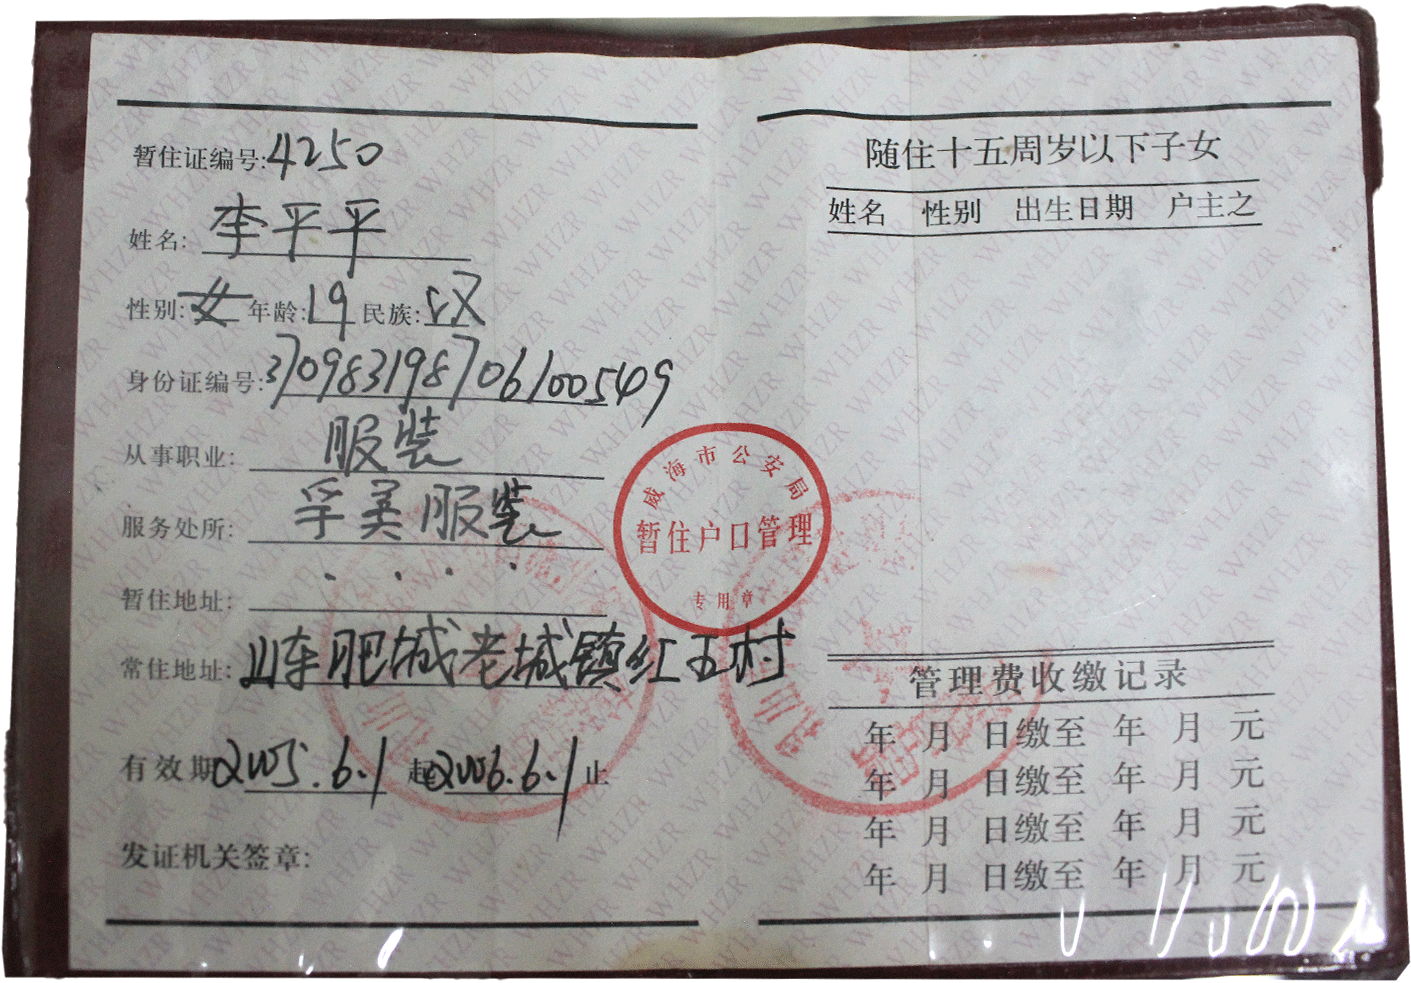 暂住证编号:4250
姓名: 李平平
性别:女 年龄:19 民族:汉
身份证编号:370983198706100549
从事职业: 服装
服务处所: 孚美服装
暂住地址:
常住地址: 山东肥城老城镇红五村
有效期2005.6.1 起2006.6.1止
发证机关签章:
威海市公安局
暂住户口管理
专用章
随住十五周岁以下子女
姓名 性别 出生日期 户主之
管理费收缴记录
年 月 日缴至 年 月 元
年 月 日缴至 年 月 元
年 月 日缴至 年 月 元
年 月 日缴至 年 月 元
WHZR